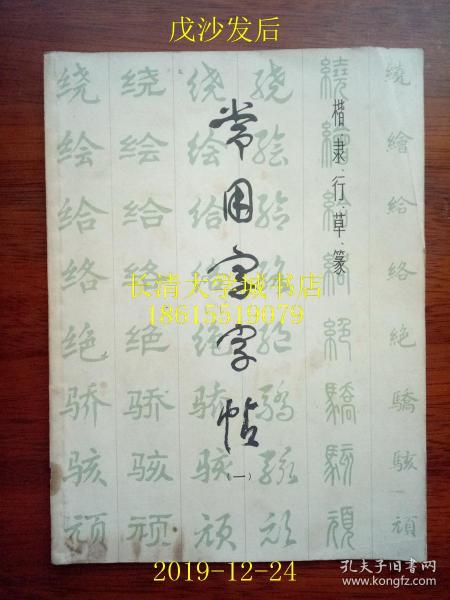 戊沙发后
楷·隶·行·草·篆
常用字字帖
(一)
绕 绕 绕 绕 繞 繞
绘 绘 绘 绘 繪 繪
给 给 给 给 給 給
络 络 络 络 絡 絡
绝 绝 绝 绝 絕 絕
骄 骄 骄 骄 驕 驕
骇 骇 骇 骇 駭 駭
顽 顽 顽 顽 頑 頑
长清大学城书店
18615519079
2019-12-24
孔夫子旧书网
www.kongfz.com